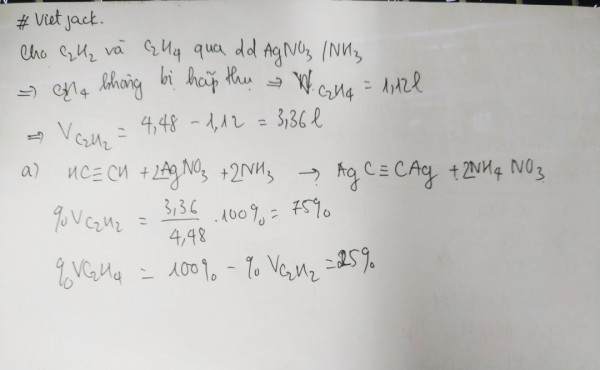 # Vietjack.
Cho C2H2 và C2H4 qua dd AgNO3 / NH3
=> C2H4 không bị hấp thụ => V C2H4 = 1,12 l
=> V C2H2 = 4,48 - 1,12 = 3,36 l
a) HC≡CH + 2AgNO3 + 2NH3 → AgC≡CAg + 2NH4NO3
%V C2H2 = 3,36/4,48 . 100% = 75%
%V C2H4 = 100% - %V C2H2 = 25%